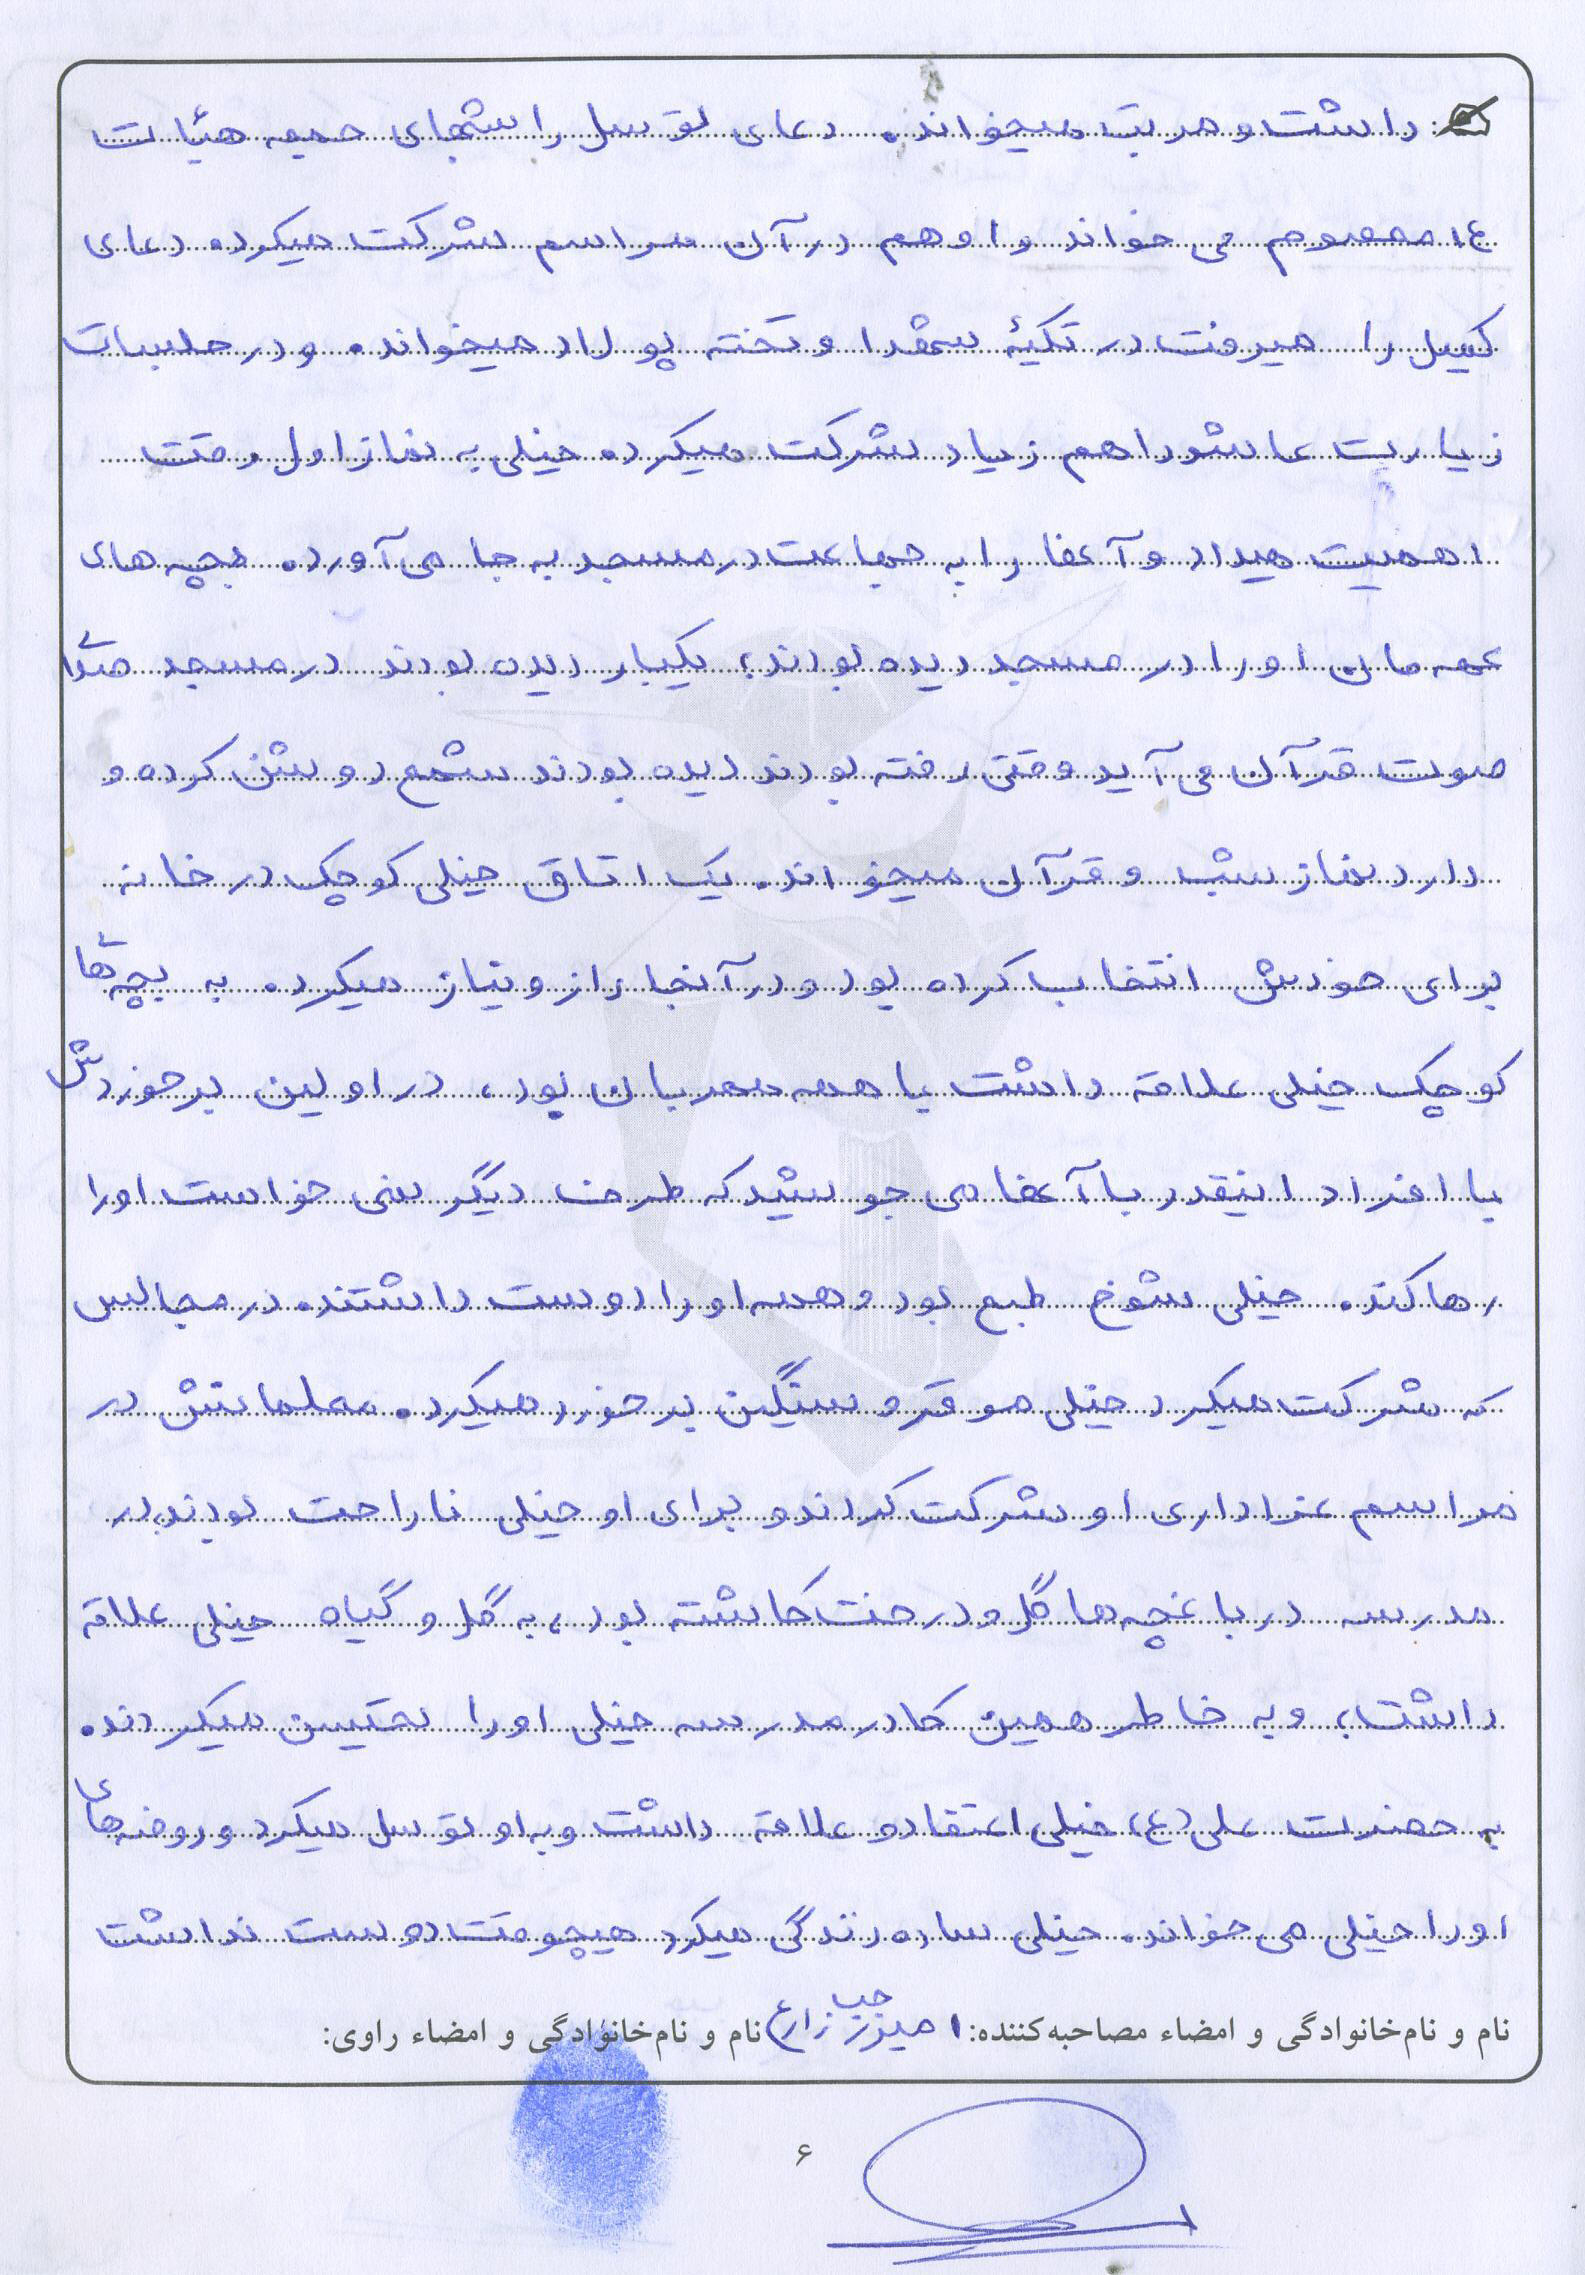 داشت و مرتب میخواند. دعای توسل را شبهای جمعه هیأت
۱۴ معصوم می خواند و او هم در آن مراسم شرکت میکرد. دعای
کمیل را میرفت در تکیهٔ شهدا و تخته پولاد میخواند. و در جلسات
زیارت عاشورا هم زیاد شرکت میکرد. خیلی به نماز اول وقت
اهمیت میداد و آنها را به جماعت در مسجد به جا می آورد. بچه های
عمه مان او را در مسجد دیده بودند، یکبار دیده بودند در مسجد صدا
صوت قرآن می آید وقتی رفته بودند دیده بودند شمع روشن کرده و
دارد نماز شب و قرآن میخواند. یک اتاق خیلی کوچک در خانه
برای خودش انتخاب کرده بود و در آنجا راز و نیاز میکرد. به بچه های
کوچک خیلی علاقه داشت با همه مهربان بود، در اولین برخوردش
با افراد اینقدر با آنها می جوشید که طرف دیگر نمی خواست او را
رها کند. خیلی شوخ طبع بود و همه او را دوست داشتند. در مجالس
که شرکت میکرد خیلی موقر و سنگین برخورد میکرد. معلمانش در
مراسم عزاداری او شرکت کردند و برای او خیلی ناراحت بودند، در
مدرسه در باغچه ها گل و درخت کاشته بود، به گل و گیاه خیلی علاقه
داشت، و به خاطر همین کادر مدرسه خیلی او را تحسین میکردند.
به حضرت علی (ع) خیلی اعتقاد و علاقه داشت و به او توسل میکرد و روضه های
او را خیلی می خواند. خیلی ساده زندگی میکرد هیچوقت دوست نداشت
نام و نام‌خانوادگی و امضاء مصاحبه‌کننده: زارع نام و نام‌خانوادگی و امضاء راوی:
۶